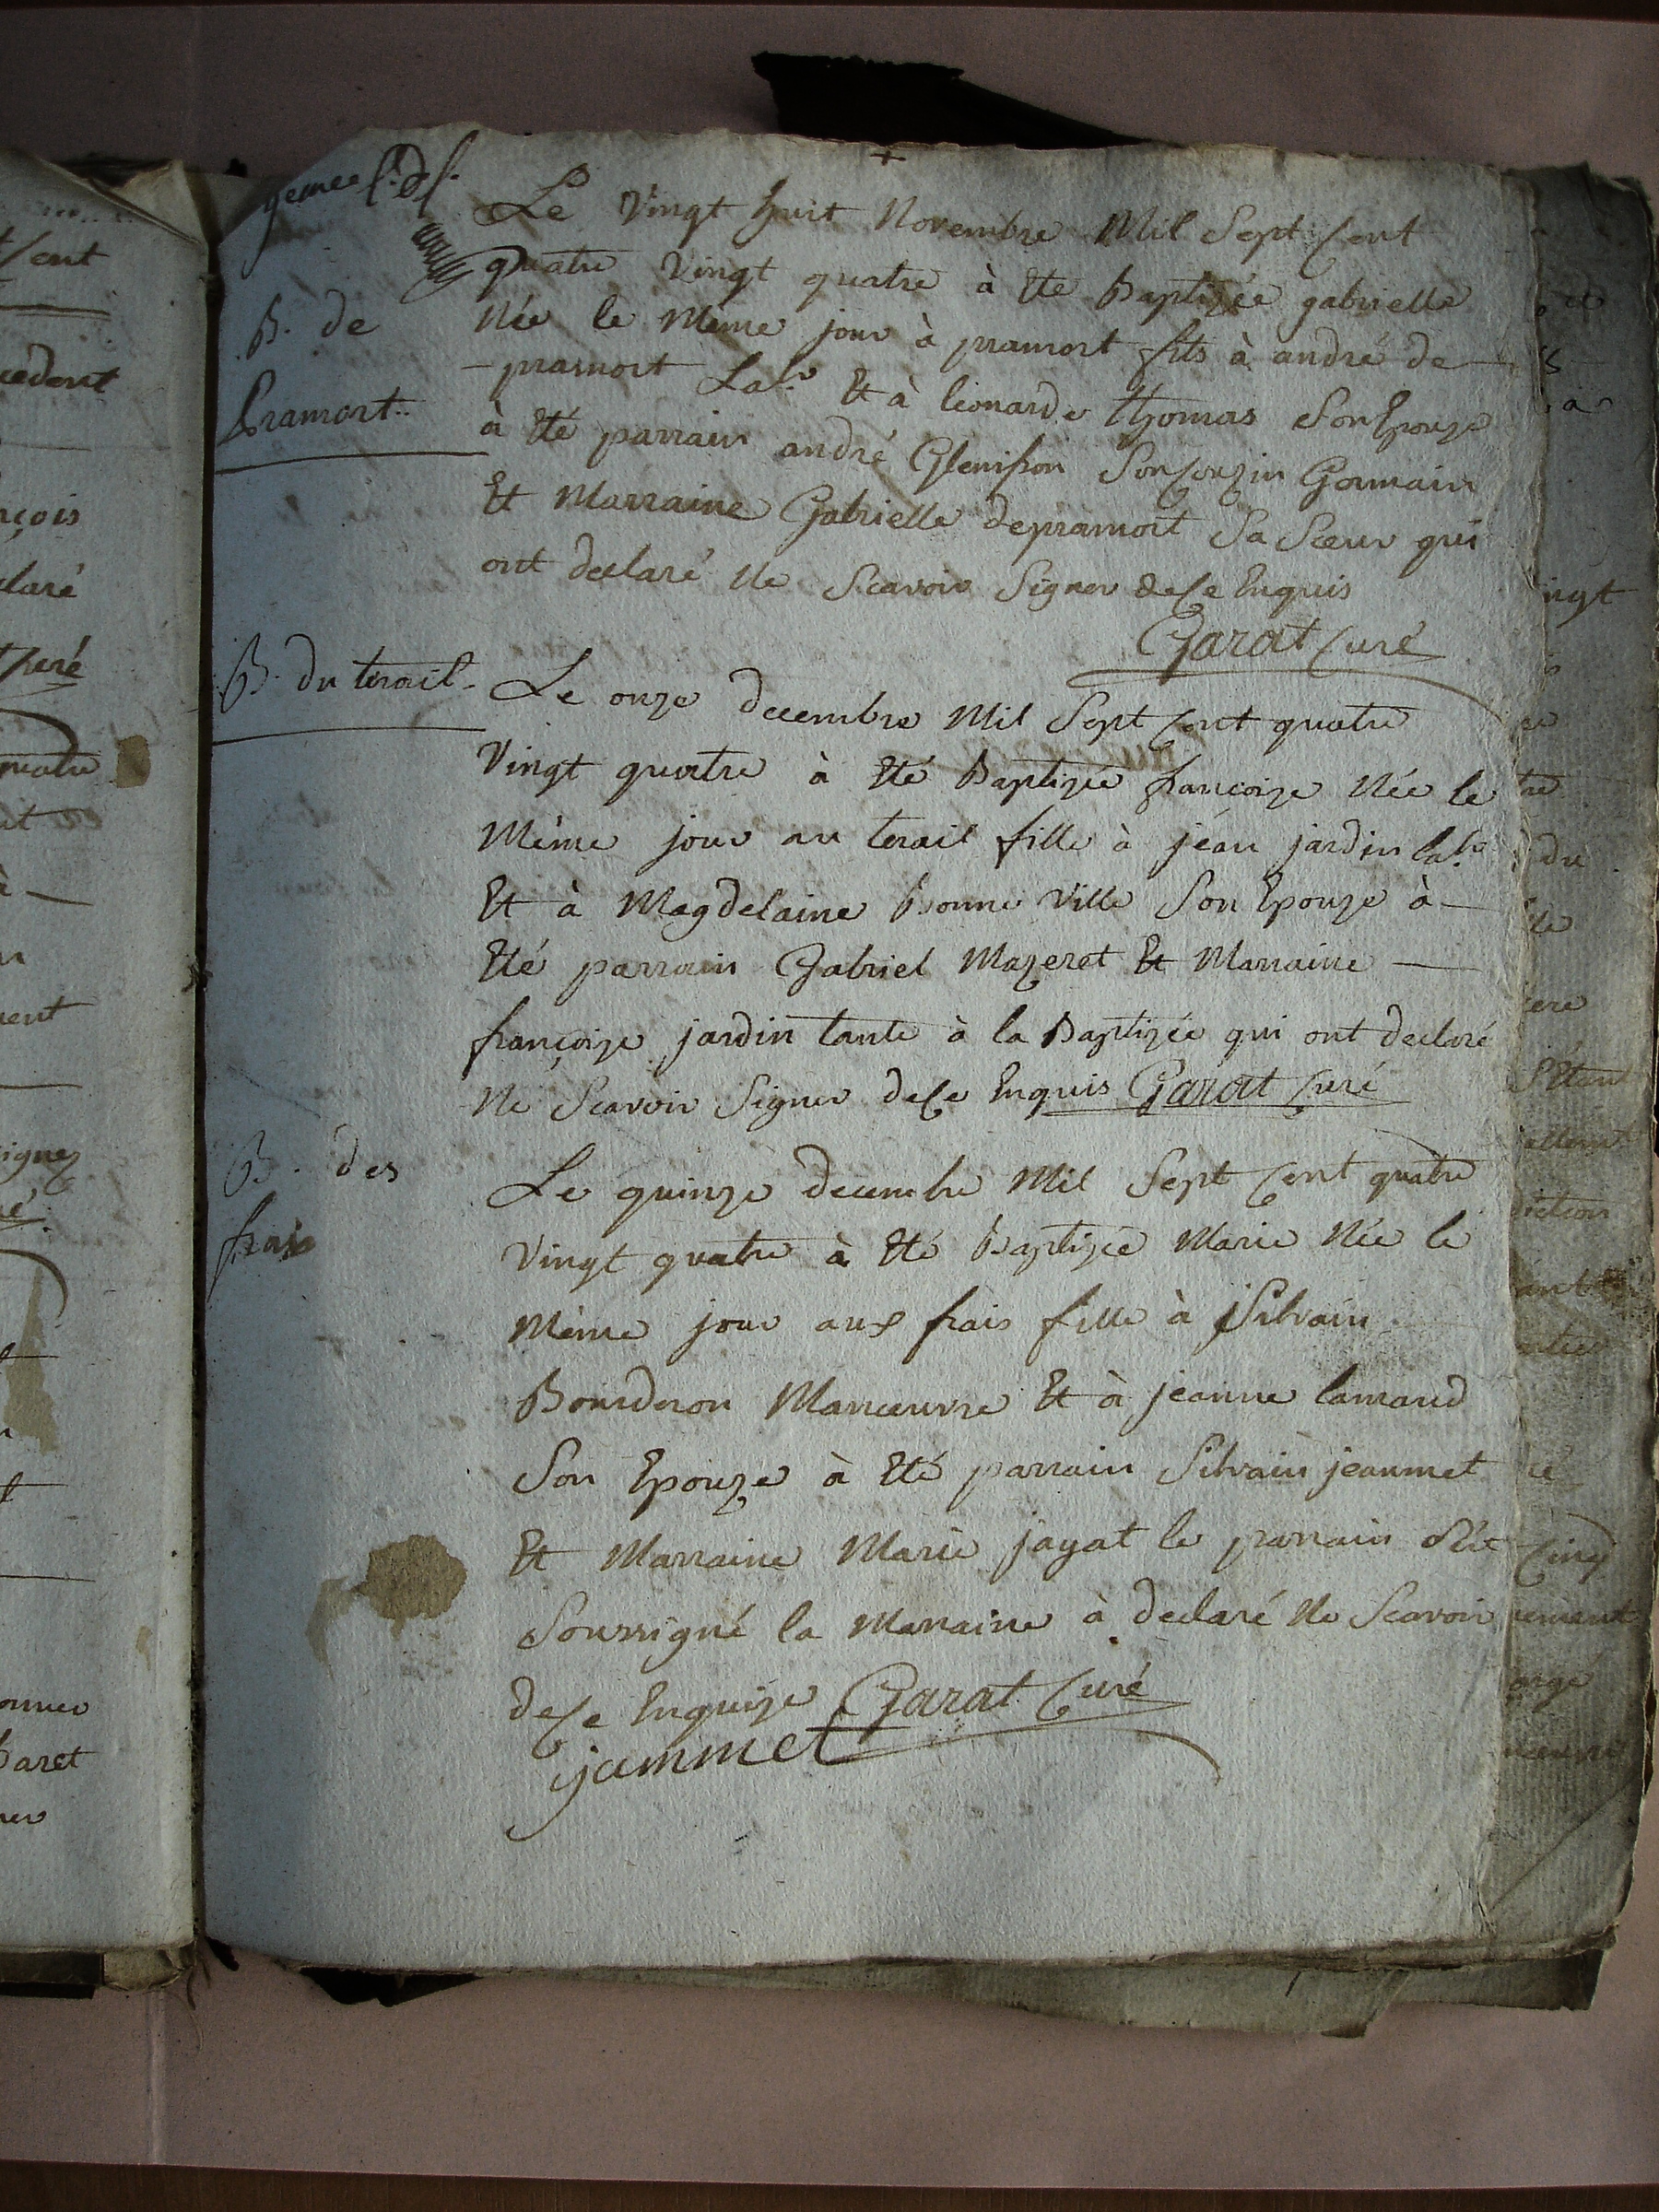 Le Vingt huit Novembre Mil Sept Cent
quatre Vingt quatre à Eté Baptizée gabrielle
B. de
Née le Même jour à pramort fils à andré de
Pramort
- pramort Lab.r Et à léonarde thomas Son Epouze
à Eté parrain andré Glenisson Son Couzin Germain
Et Marraine Gabrielle depramort Sa Sœur qui
ont declaré Ne Scavoir Signer de Ce Enquis
Garat Curé
B. du terail
Le onze decembre Mil Sept Cent quatre
Vingt quatre à Eté Baptizée françoize Née le
Même jour au terail fille à jéan jardin lab.r
Et à Magdelaine Bonne Ville Son Epouze à
Eté parrain Gabriel Mazeret Et Marraine
françoize jardin tante à la Baptizée qui ont declaré
Ne Scavoir Signer de Ce Enquis Garat Curé
B. des
frais
Le quinze decembre Mil Sept Cent quatre
Vingt quatre à Eté Baptizée Marie Née le
Même jour aux frais fille à Silvain
Bourderon Manœuvre Et à jeanne lamaud
Son Epouze à Eté parrain Silvain jeammet
Et Marraine Marie jayat le parrain
Soussigné la Marraine à declaré Ne Scavoir
de Ce Enquize Garat Curé
jammet